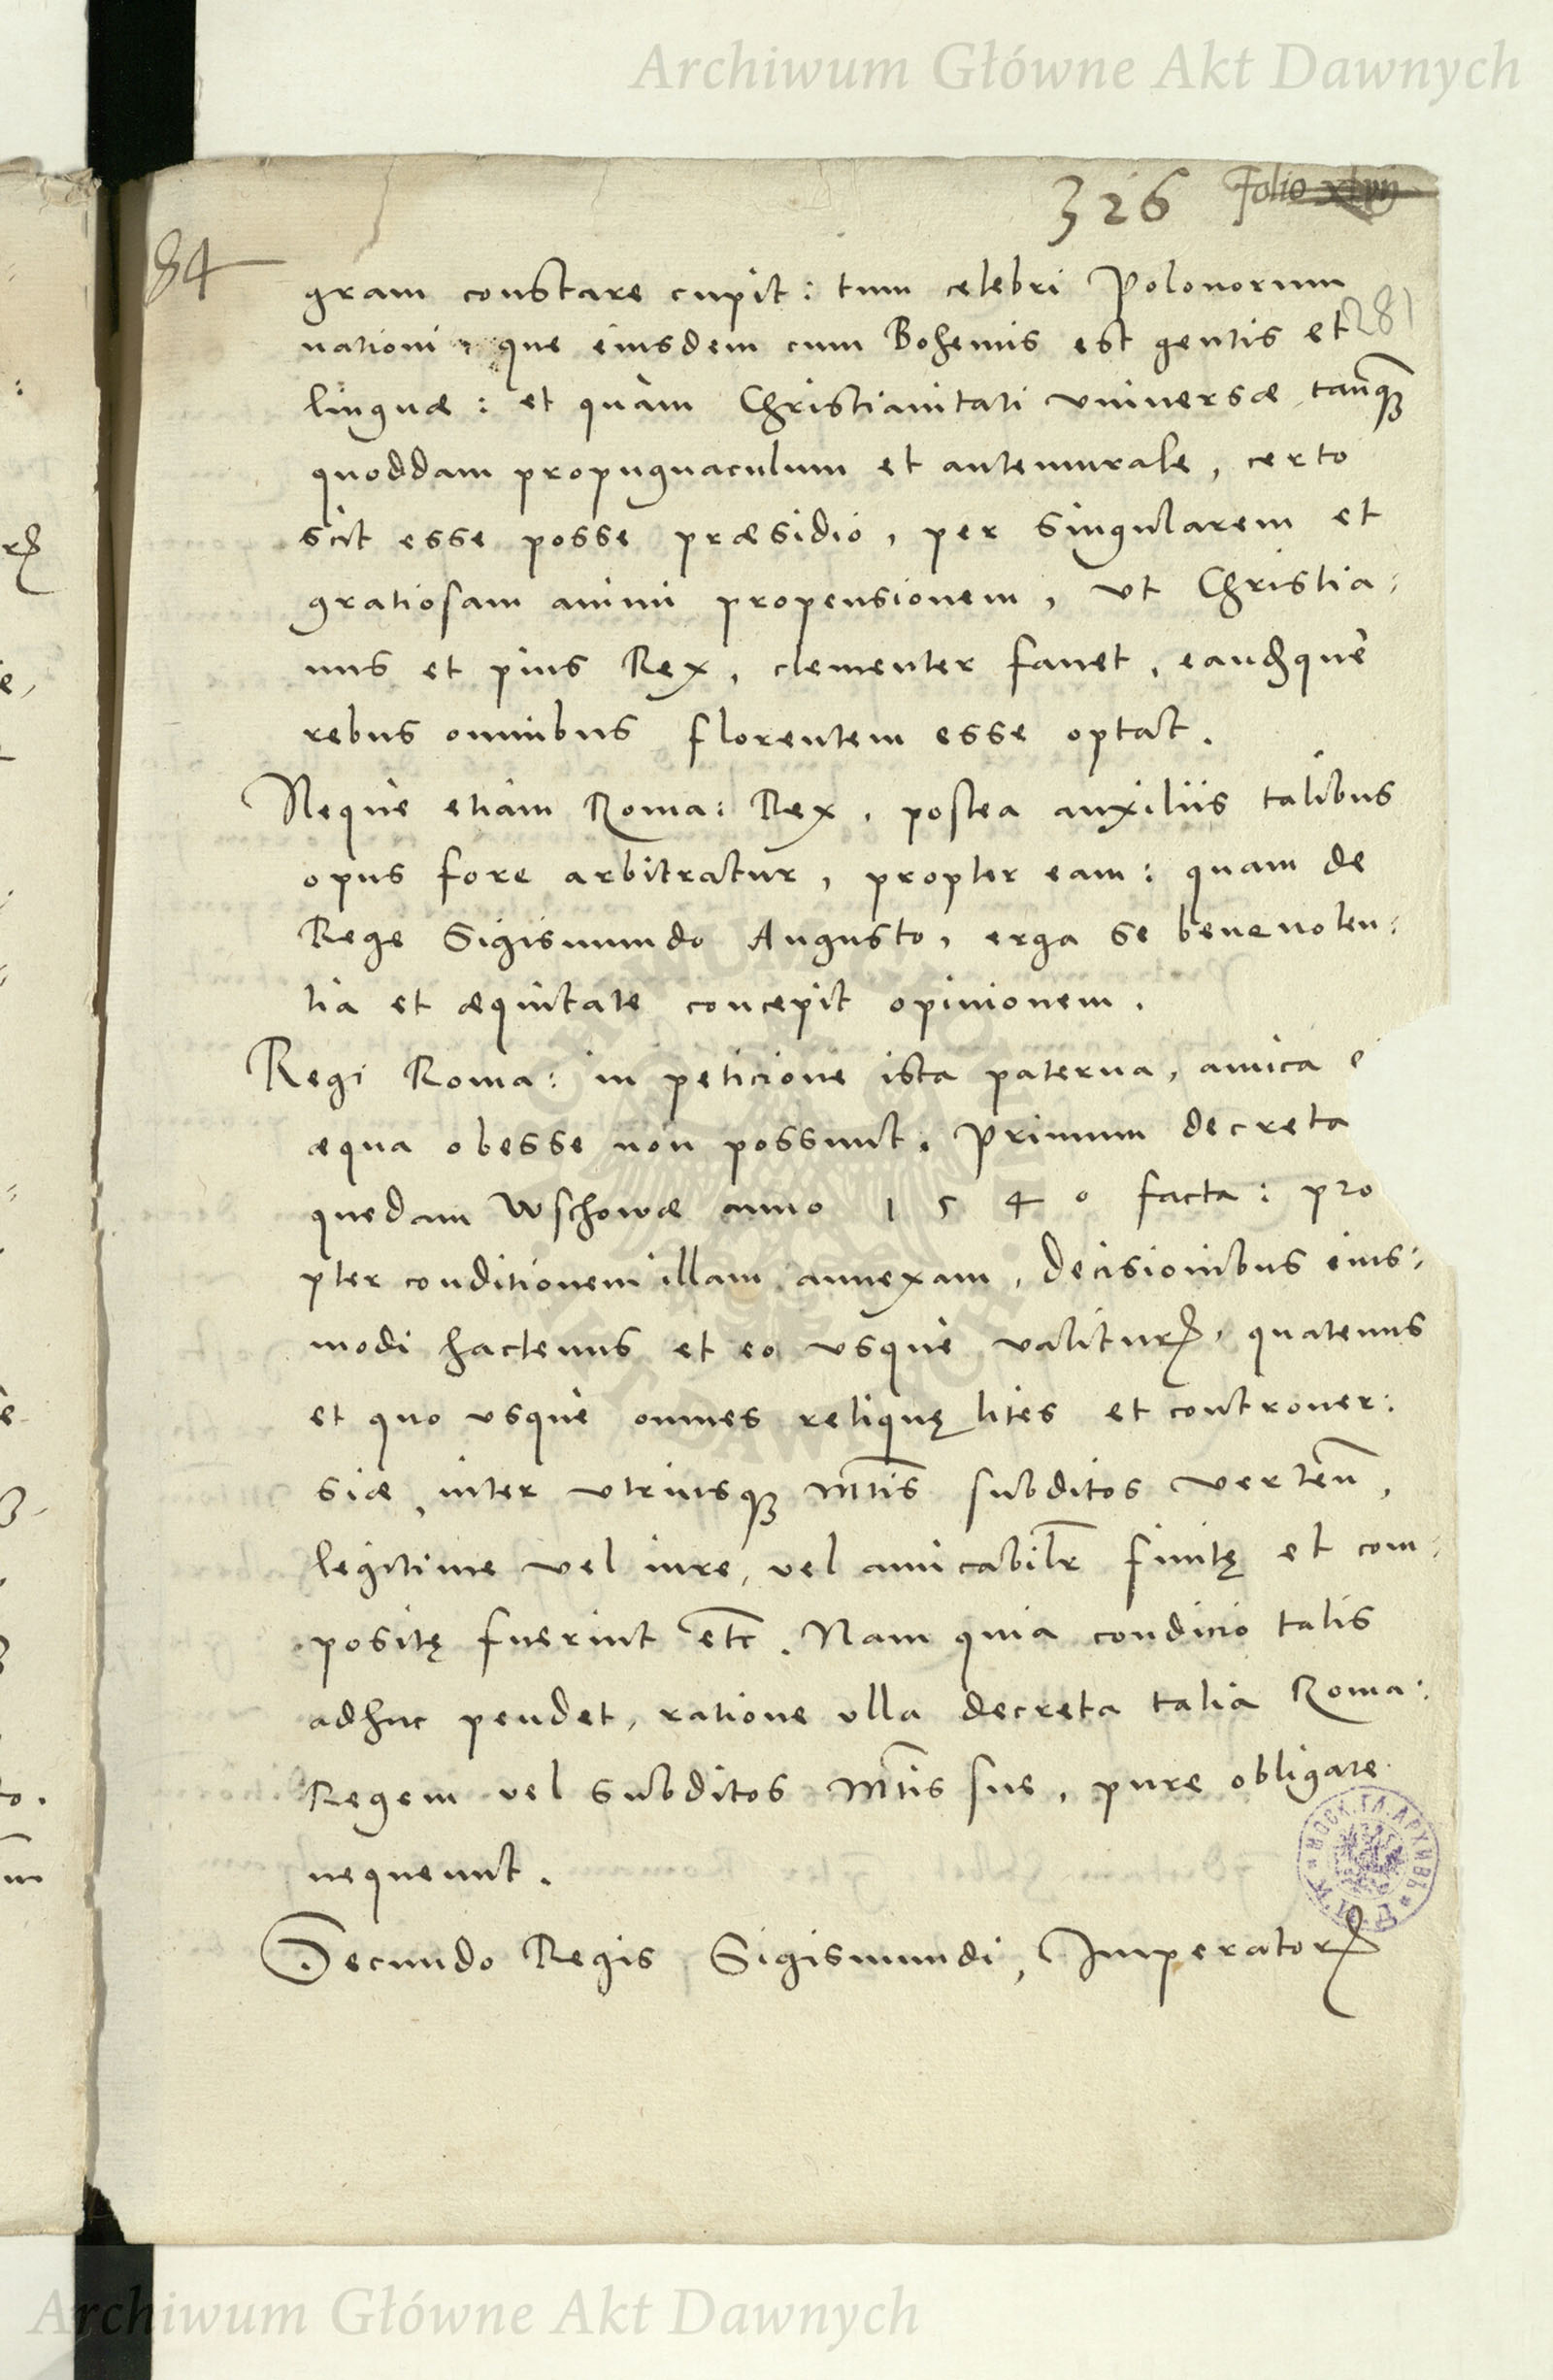 Archiwum Główne Akt Dawnych
326 Folio xlvij
84
gram constare cupit: tum celebri Polonorum
281
nationi, que eiusdem cum Bohemis est gentis et
linguæ: et quàm Christianitati vniuersæ tanq̃ꝫ
quoddam propugnaculum et antemurale, certo
scit esse posse præsidio, per singularem et
gratiosam animi propensionem, vt Christia:
nus et pius Rex, clementer fauet, eandꝫque
rebus omnibus florentem esse optat.
Neque etiam Roma: Rex, postea auxiliis talibus
opus fore arbitratur, propter eam: quam de
Rege Sigismundo Augusto, erga se beneuolen:
tia et æquitate concepit opinionem.
Regi Roma: in peticione ista paterna, amica
æqua obesse non possunt. Primum decreta
quedam Wschowæ anno 1540 facta: pro
pter conditionem illam annexam, decisionibus eius:
modi hactenus et eo vsque valiturꝭ, quatenus
et quo vsque omnes reliquę lites et controuer:
siæ, inter vtriusqꝫ Mtis subditos verten̄,
legitime vel iure, vel amicabilr̃ finitę et com:
positę fuerint etc. Nam quia condicio talis
adhuc pendet, ratione vlla decreta talia Roma:
Regem vel subditos Mtis sue, pure obligare
nequeunt.
Secundo Regis Sigismundi, Imperatorꝭ
МОСК. ГЛ. АРХИВЪ
ARCHIWUM GŁÓWNE AKT DAWNYCH
Archiwum Główne Akt Dawnych